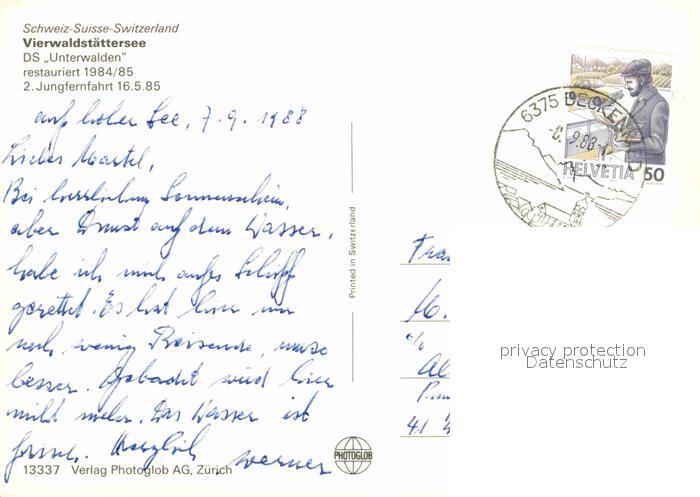 Schweiz-Suisse-Switzerland
Vierwaldstättersee
DS „Unterwalden"
restauriert 1984/85
2. Jungfernfahrt 16.5.85
auf hoher See, 7.9.1988
Bei herrlichem Sonnenschein,
aber Dunst auf dem Wasser,
habe ich mich aufs Schiff
gerettet. Es hat hier nur
noch wenig Reisende, umso
besser. Gebadet wird hier
nicht mehr. Das Wasser ist
frisch. Herzlich
Werner
13337 Verlag Photoglob AG, Zürich
Printed in Switzerland
PHOTOGLOB
6375 BECKEN
9.88
HELVETIA 50
Frau
c/o
privacy protection
Datenschutz